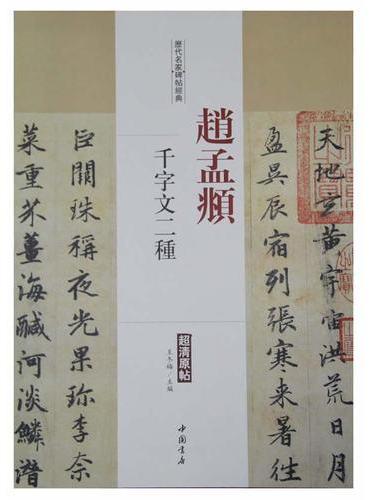 天地玄黃宇宙洪荒日月
盈昃辰宿列張寒来暑往
歷代名家碑帖經典
趙孟頫
千字文二種
超清原帖
王冬梅/主編
中國書店
巨闕珠稱夜光果珍李柰
菜重芥薑海鹹河淡鱗潛